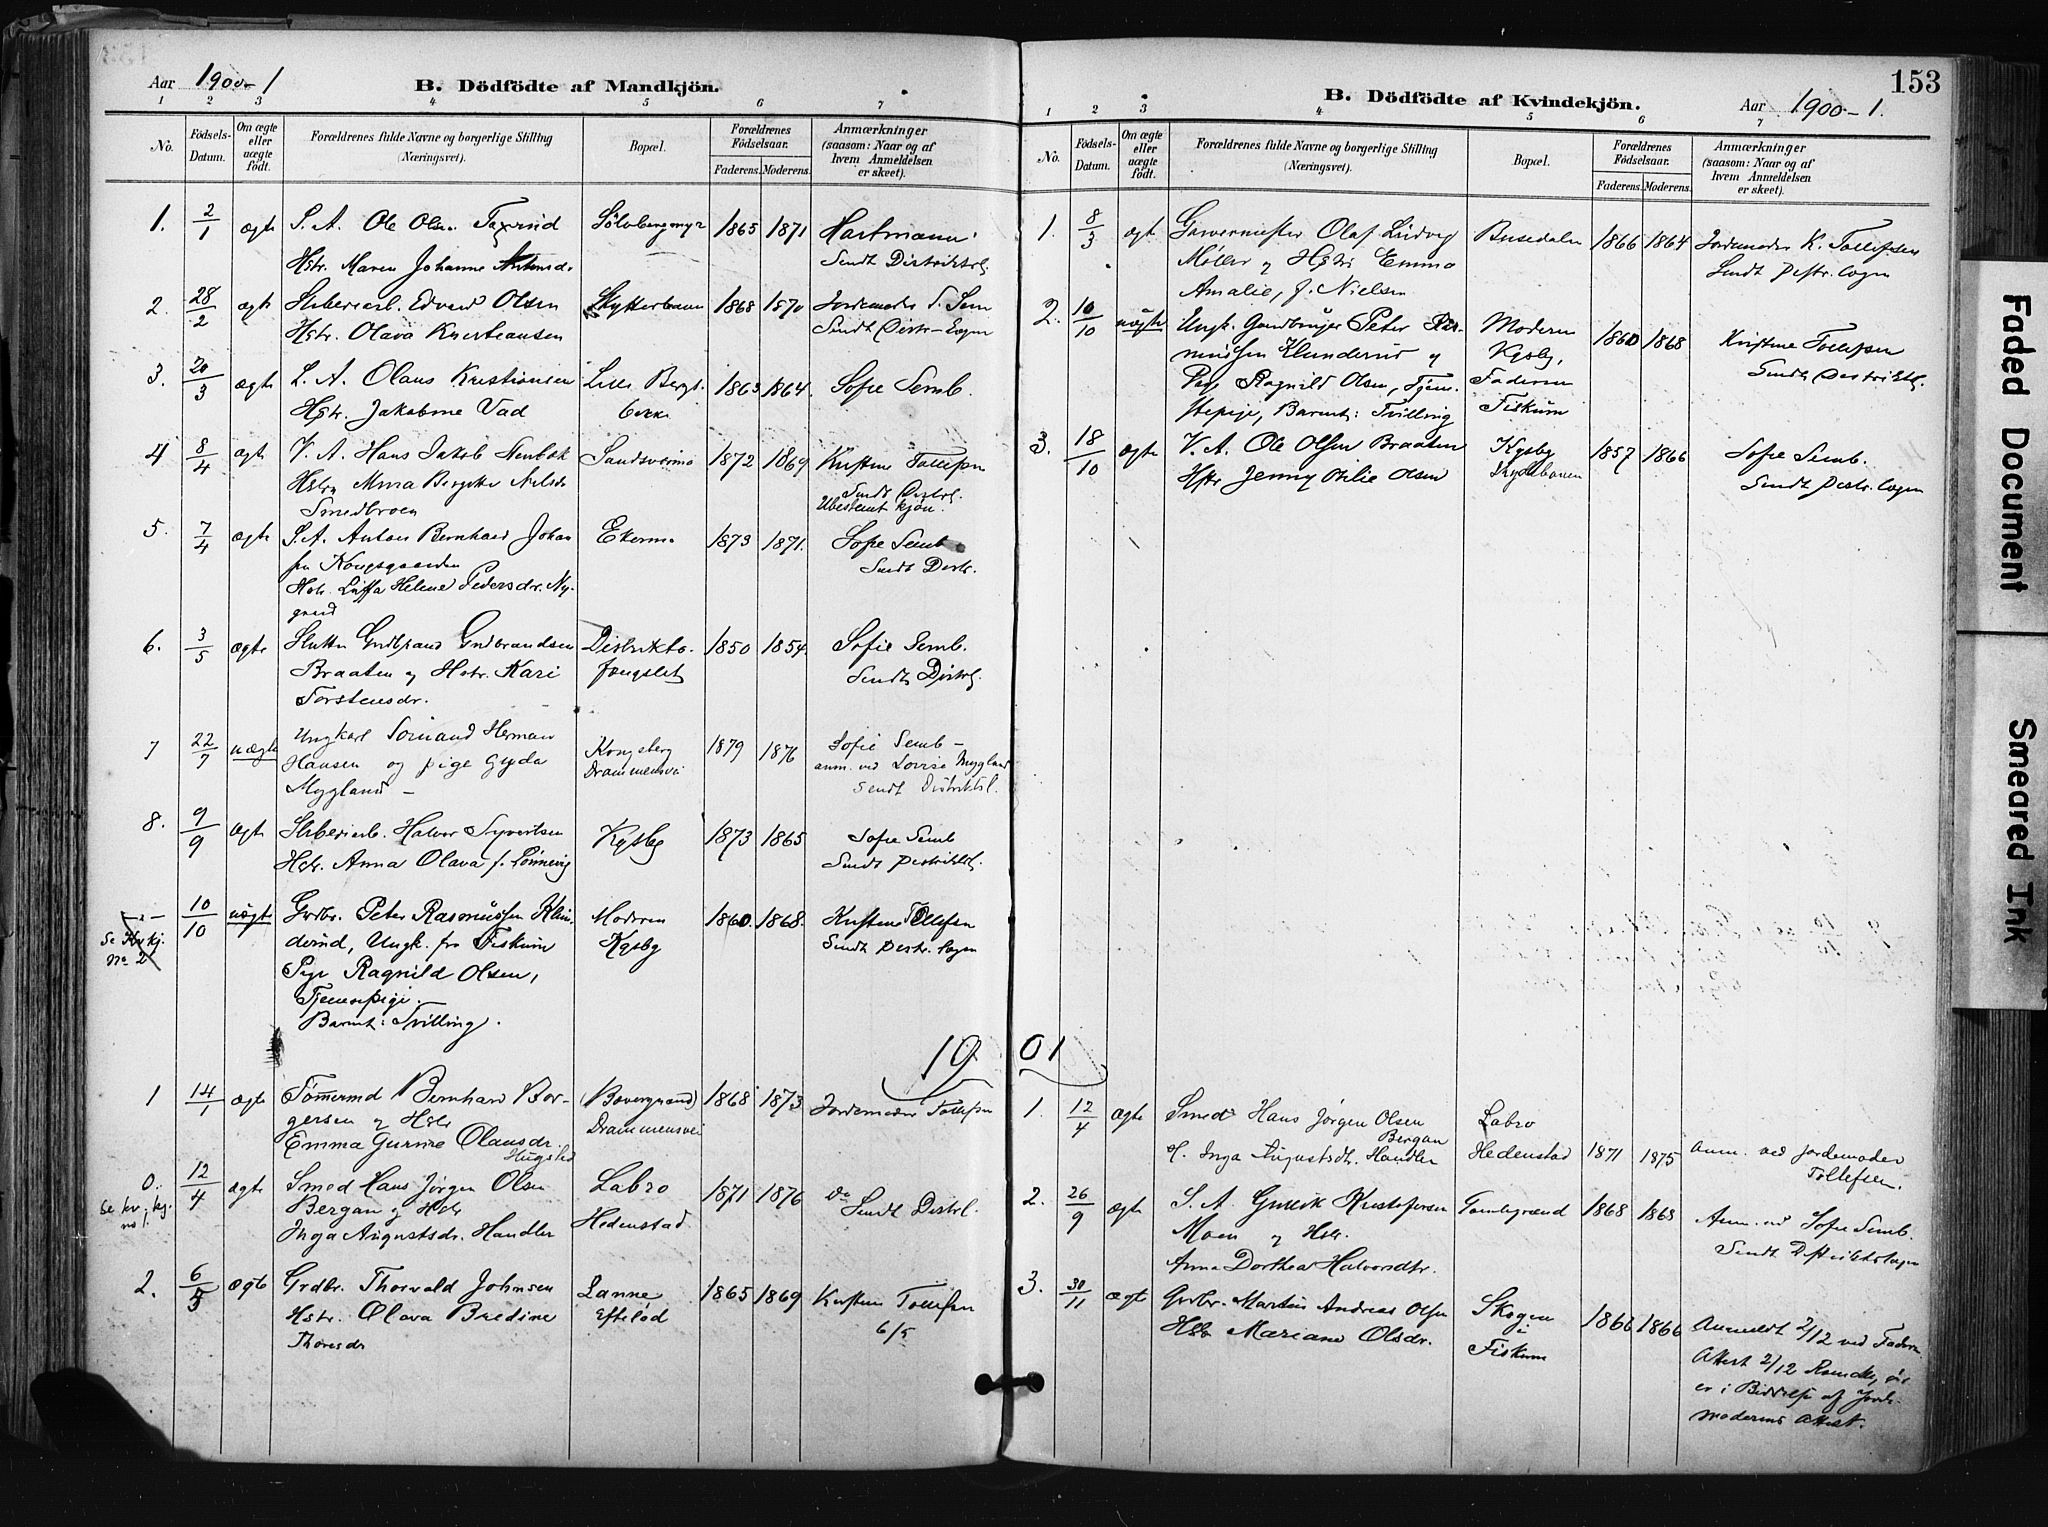 153
Aar 1900-1
B. Dödfödte af Mandkjön.
1 2 3 4 5 6 7
No.
Födsels-Datum.
Om ægte eller uægte födt.
Forældrenes fulde Navne og borgerlige Stilling (Næringsvei).
Bopæl.
Forældrenes Födselsaar.
Faderens. Moderens.
Anmærkninger (saasom: Naar og af hvem Anmeldelsen er skeet).
1. 2/1 ægte S. A. Ole Olsen 1865 1871 Hartmann
Hstr. Maren Johanne Sendt Distriktsl.
2. 28/2 ægte Edvard Olsen Skytterbanen 1868 1870 Jordemoder S. Sem
Hstr. Olava Kristiansen Sendt Distr-Lægen
3. 20/3 ægte L. A. Olaus Kristiansen Lille Bergs- 1863 1864. Sofie Semb.
Hstr. Jakobine Vad
4 8/4 ægte V. A. Hans Jakob Sandsværmo 1872 1869 Kirstine Tollefsen
Sendt Distrl.
Smedbroen Ubestemt kjön.
5. 7/4 ægte S. A. Anton Bernhard Johan 1873 1871. Sofie Semb
fra Kongsgaarden Sendt Distr.
Helene Pedersdr. Ny-
gaard
6. 3/5 ægte Gudbrand Gudbrandsen Distrikts- 1850 1854. Sofie Semb.
Braaten og Hstr. Kari fengslet Sendt Distrl.
Torstensdr.
7 22/7 uægte Ungkarl Herman Kongsberg 1879 1876 Sofie Semb -
Hansen og pige Gyda Drammensvei anm. ved Lovise Mygland
Mygland - Sendt Distriktsl.
8. 9/9 ægte Halvor Syvertsen Kgsbg 1873 1865 Sofie Semb
Hstr. Anna Olava f. Sönnevig Sendt Distriktsl.
-"- 10/10 uægte Grdbr. Peter Rasmussen Klun- Moderen 1860. 1868. Kirstine Tollefsen
Se Kv.kj. No 2 derud, Ungk. fra Fiskum Kgsbg Sendt Distr. lægen
Pige Ragnild Olsen,
Tjenestepige.
Barnet: Tvilling.
1901
1 14/1 ægte Tömmermd Bernhard Bor- 1868 1873 Jordemoder Tollefsen
gersen og Hstr Drammensvei
Emma Gurine Olausdr.
Hugsted
0. 12/4 ægte Smed Hans Jørgen Olsen Labro 1871 1876 do
Se kv. kj. no 1. Bergan og Hstr Hedenstad Sendt Distrl.
Inga Augustsdr. Handler
2. 6/5 ægte Grdbr. Thorvald Johnsen Lanne 1865 1869 Kirstine Tollefsen
Hstr. Olava Bredine Eftelød 6/5
Thoresdr
B. Dödfödte af Kvindekjön.
Aar 1900-1.
1 2 3 4 5 6 7
No.
Födsels-Datum.
Om ægte eller uægte födt.
Forældrenes fulde Navne og borgerlige Stilling (Næringsvei).
Bopæl.
Forældrenes Födselsaar.
Faderens. Moderens.
Anmærkninger (saasom: Naar og af hvem Anmeldelsen er skeet).
1. 8/3 ægt Garvermester Olaf Ludvig Busedalen 1866 1864 Jordemoder K. Tollefsen
Möller og Hstr Emma Sendt Distr. lægen
Amalie, f. Nielsen
2. 10/10 uægte Ungk. Gaardbruger Peter Ras- Moderen 1860 1868 Kristine Tollefsen
mussen Klunderud og Kgsbg, Sendt Distriktsl.
Pige Ragnild Olsen, Tjene- Faderen
stepige, Barnet: Tvilling Fiskum
3. 18/10 ægte V. A. Ole Olsen Braaten Kgsbg 1857 1866 Sofie Semb.
Hstr Jenny Otilie Olsen Skydebanen Sendt Distr. lægen
1. 12/4 ægte Smed Hans Jørgen Olsen Labro
Bergan
H. Inga Augustsdtr. Handler Hedenstad 1871 1875 anm. ved jordemoder
Tollefsen.
2. 26/9 ægte S. A. Gullik Kristofersen 1868 1868 Anm. ved Sofie Semb.
Moen og Hstr. Sendt Distriktslægen
Anna Dorthea Halvorsdtr.
3. 30/11 ægte Grdbr. Martin Andreas Olsen Skogen 1866 1866 Anmeldt 2/12 ved Faderen
Hstr Mariane Olsdr. i Attest 2/12
Fiskum er i Besiddelse af Jorde-
moderens Attest.
Faded Document
Smeared Ink